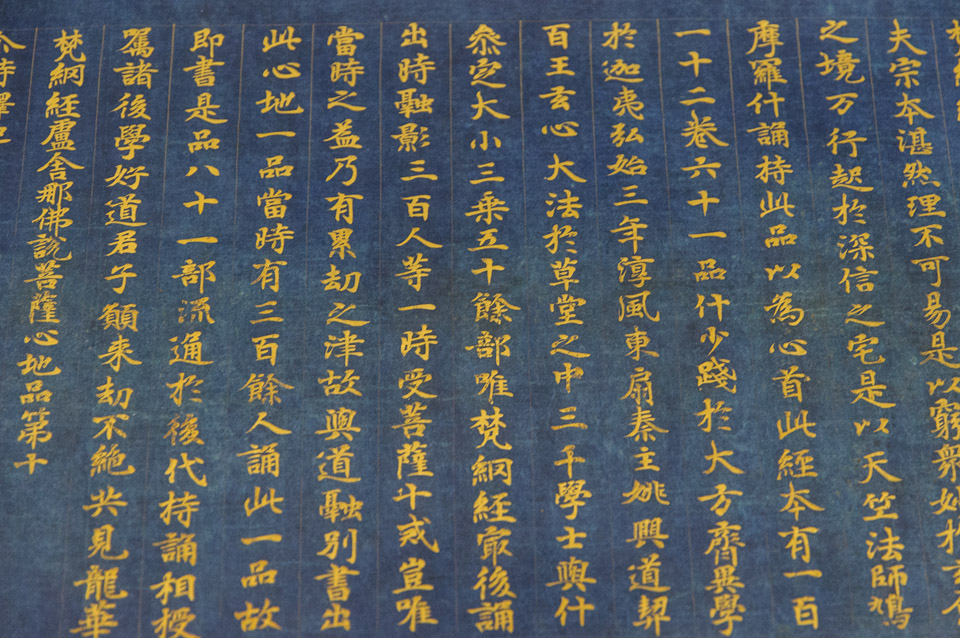 夫宗本湛然理不可易是以窮衆妙於玄
之境万行起於深信之宅是以天竺法師鳩
摩羅什誦持此品以為心首此經本有一百
一十二卷六十一品什少踐於大方齊異學
於迦夷弘始三年淳風東扇秦主姚興道契
百王玄心大法於草堂之中三千學士與什
叅定大小三乘五十餘部唯梵網經冣後誦
出時融影三百人等一時受菩薩十戒豈唯
當時之益乃有累劫之津故與道融別書出
此心地一品當時有三百餘人誦此一品故
即書是品八十一部流通於後代持誦相授
屬諸後學好道君子願來劫不絶共見龍華
梵網經盧舍那佛說菩薩心地品第十